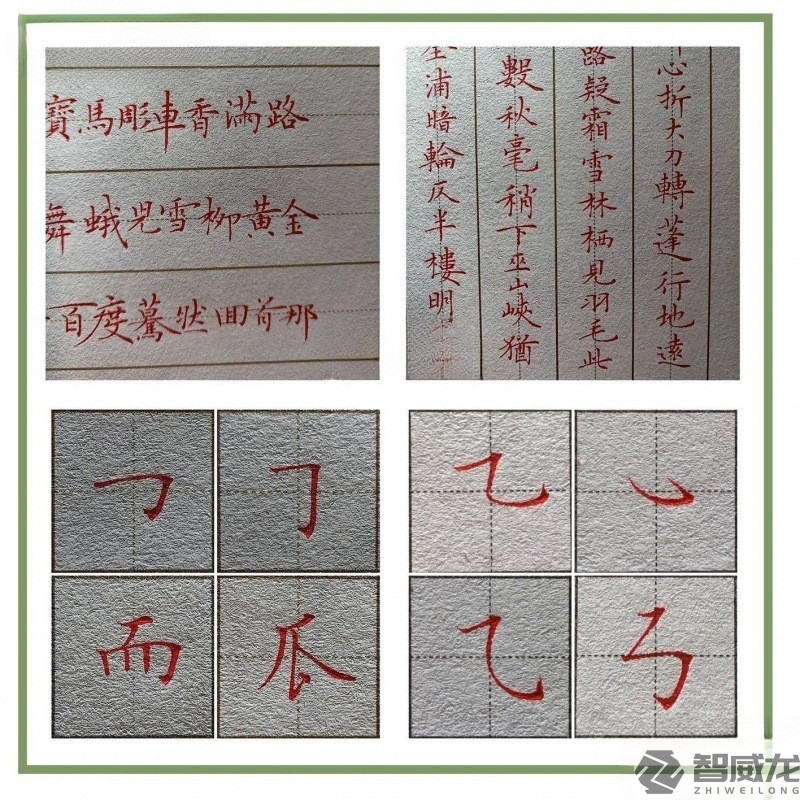 寶馬彫車香滿路
舞蛾兒雪柳黃金
百度驀然回首那
心折大刀轉蓬行地遠
路疑霜雪林栖見羽毛此
數秋毫稍下巫山峽猶
浦暗輪仄半樓明
而
瓜
智威龙
ZHIWEILONG